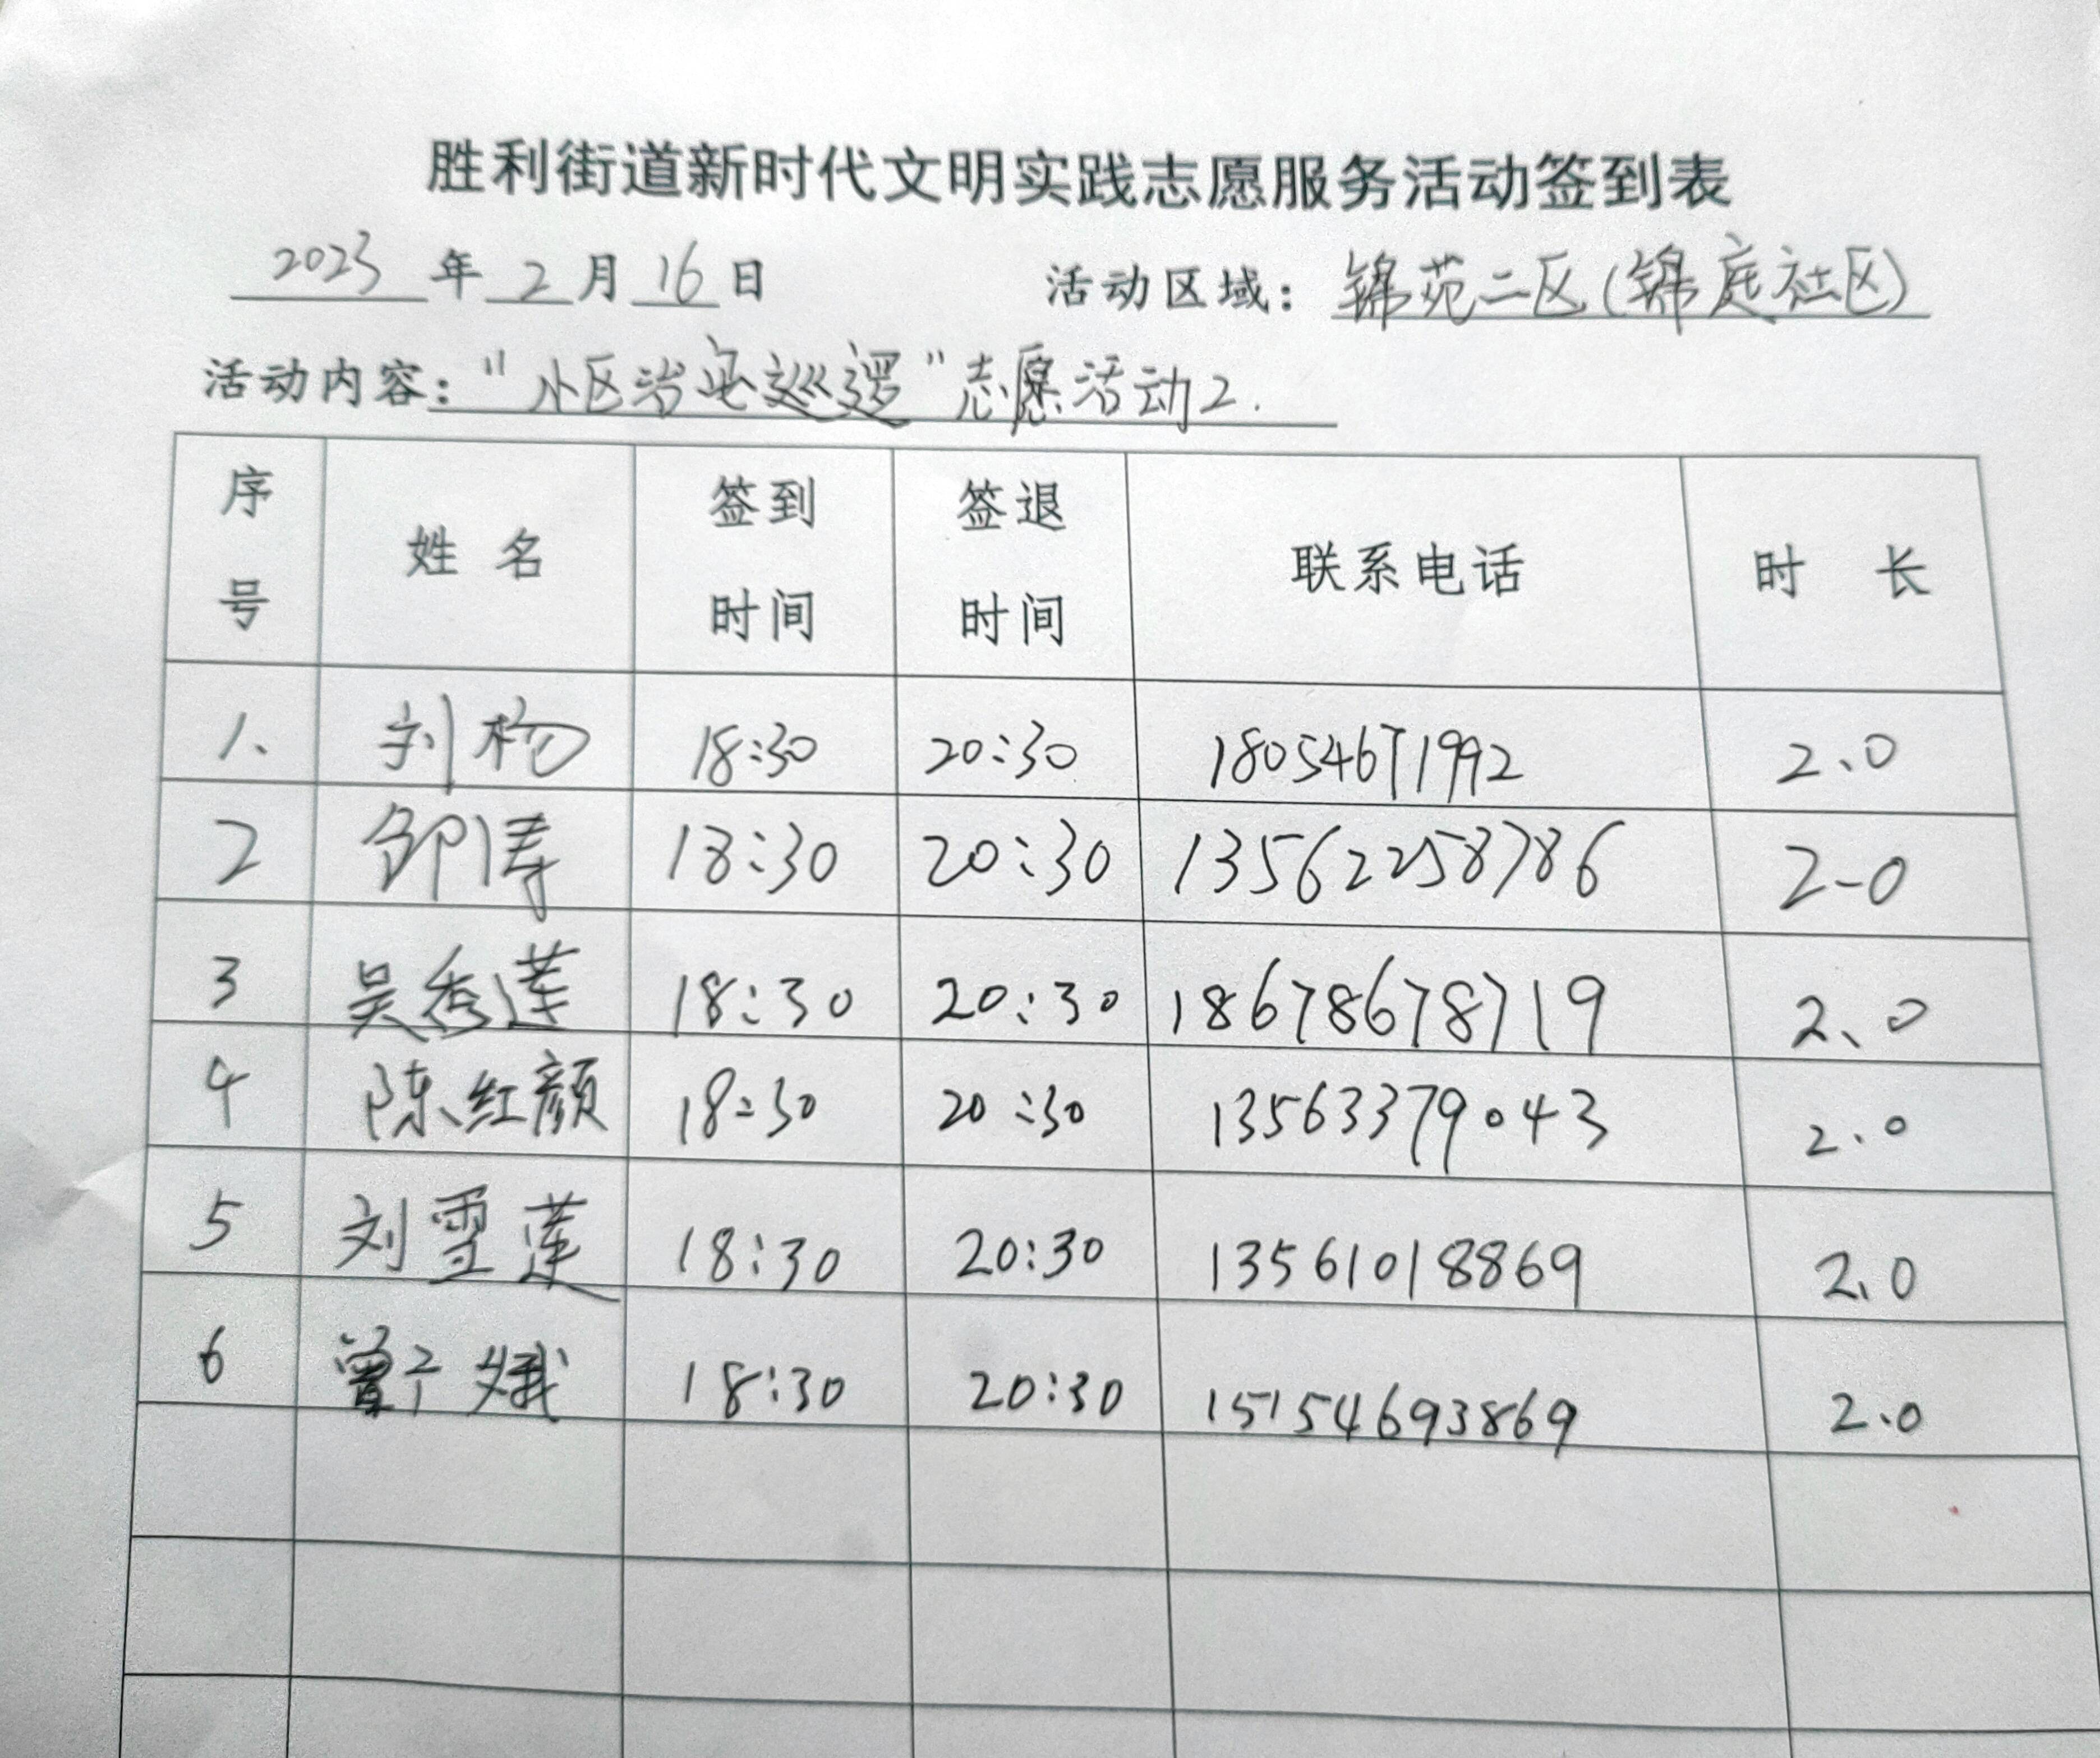 胜利街道新时代文明实践志愿服务活动签到表
2023 年 2 月 16 日 活动区域: 锦苑二区(锦庭社区)
活动内容: "小区治安巡逻"志愿活动2.
序号 姓名 签到时间 签退时间 联系电话 时长
1、 刘杨 18:30 20:30 18054671992 2、0
2 邹涛 18:30 20:30 13562258786 2-0
3 吴秀莲 18:30 20:30 18678678719 2、0
4 陈红颜 18:30 20:30 13563379043 2.0
5 刘雪莲 18:30 20:30 13561018869 2.0
6 曾子娥 18:30 20:30 15154693869 2.0